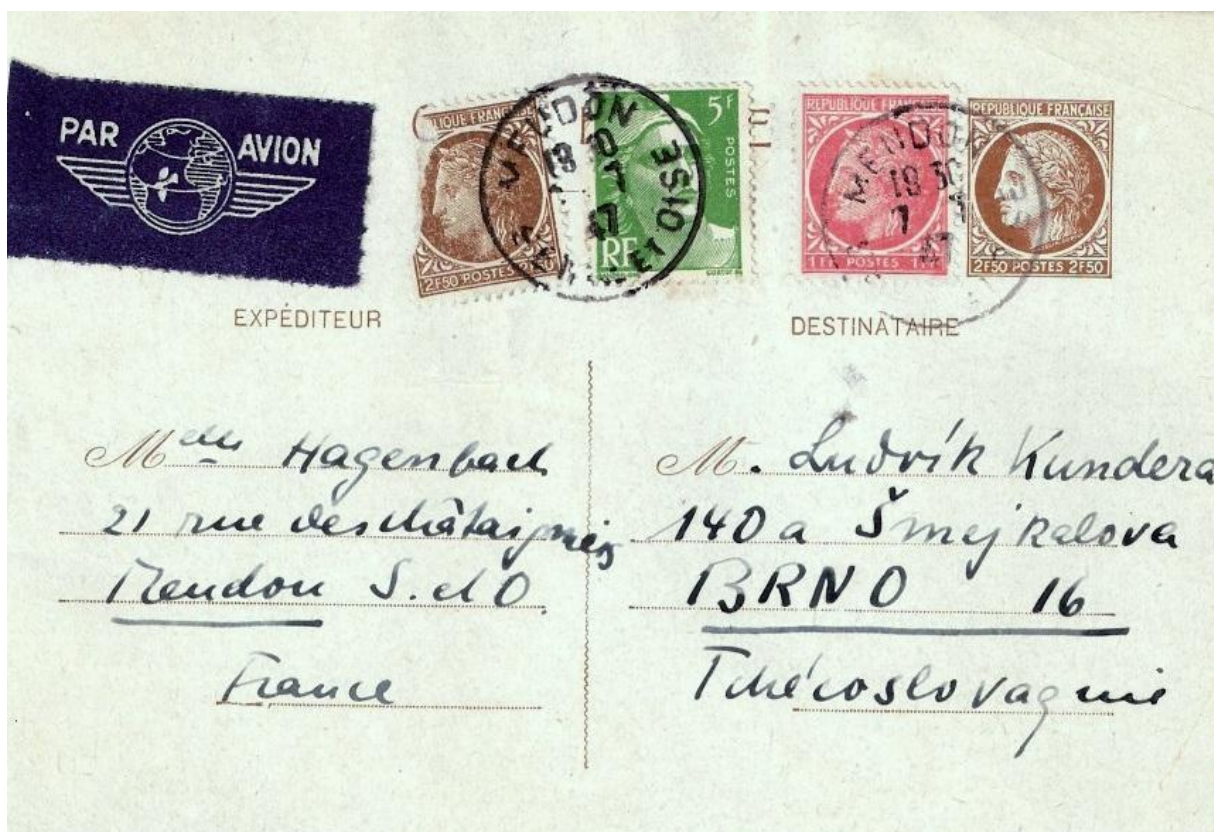 PAR AVION
RÉPUBLIQUE FRANÇAISE
2F50 POSTES
MEUDON
SEINE ET OISE
5F
POSTES
RF
REPUBLIQUE FRANÇAISE
1F POSTES 1F
MEUDON
19 30
7
47
REPUBLIQUE FRANÇAISE
2F50 POSTES 2F50
EXPÉDITEUR
Melle Hagenbach
21 rue des Châtaigniers
Meudon S. et O.
France
DESTINATAIRE
M. Ludvík Kundera
140a Šmejkalova
BRNO 16
Tchécoslovaquie